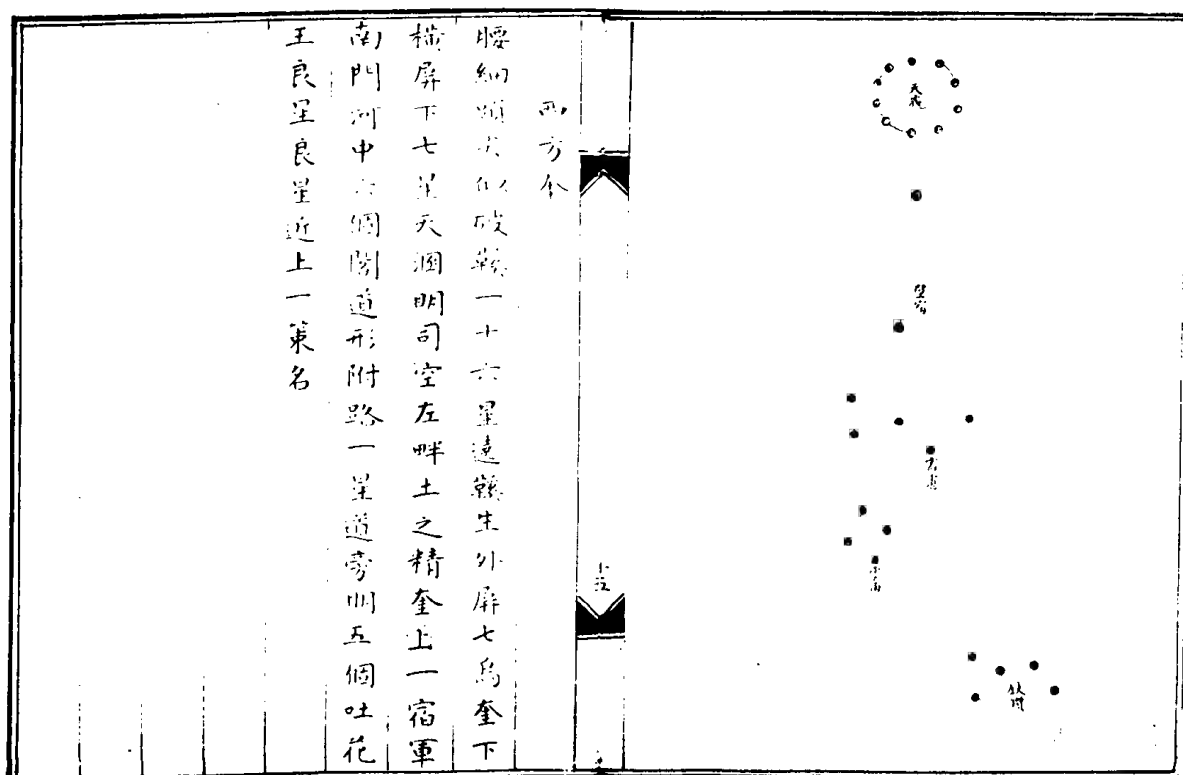 天厩
壁宿
西方奎
腰細頭尖似破鞋一十六星遶鞋生外屏七烏奎下
橫屏下七星天溷明司空左畔土之精奎上一宿軍
南門河中六個閣道形附路一星道旁明五個吐花
王良星良星近上一策名